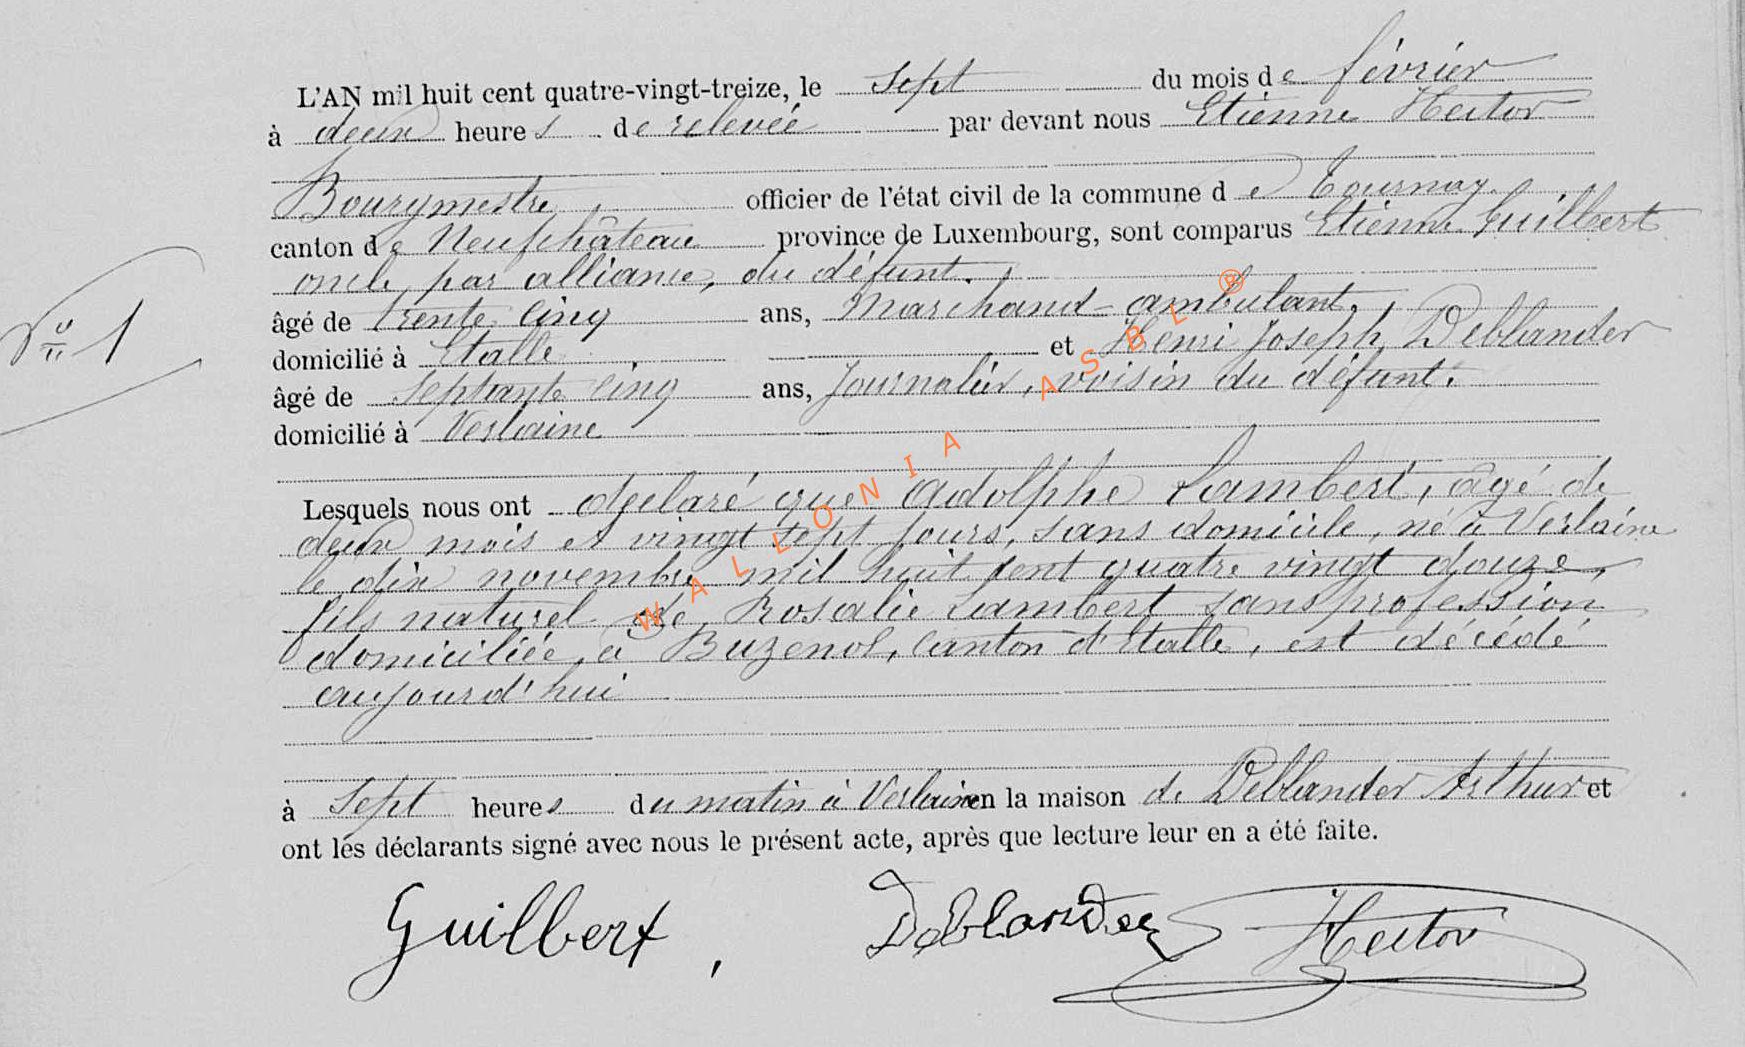 L'AN mil huit cent quatre-vingt-treize, le sept du mois de février
à deux heures de relevée par devant nous Etienne Hector
Bourgmestre officier de l'état civil de la commune de Tournay
canton de Neufchâteau province de Luxembourg, sont comparus Etienne Guilbert
oncle par alliance, du défunt.
âgé de trente cinq ans, marchand-ambulant,
domicilié à Etalle et Henri Joseph Deblander
âgé de septante cinq ans, Journalier, voisin du défunt.
domicilié à Verlaine
N° 1
Lesquels nous ont déclaré que Adolphe Lambert, âgé de
deux mois et vingt sept jours, sans domicile, né à Verlaine
le dix novembre mil huit cent quatre vingt douze,
fils naturel de Rosalie Lambert sans profession
domiciliée à Buzenol, canton d'Etalle, est décédé
aujourd'hui
à sept heures du matin à Verlaine en la maison de Deblander Arthur et
ont les déclarants signé avec nous le présent acte, après que lecture leur en a été faite.
Guilbert, Deblander Hector
WALLONIA ASBL ®